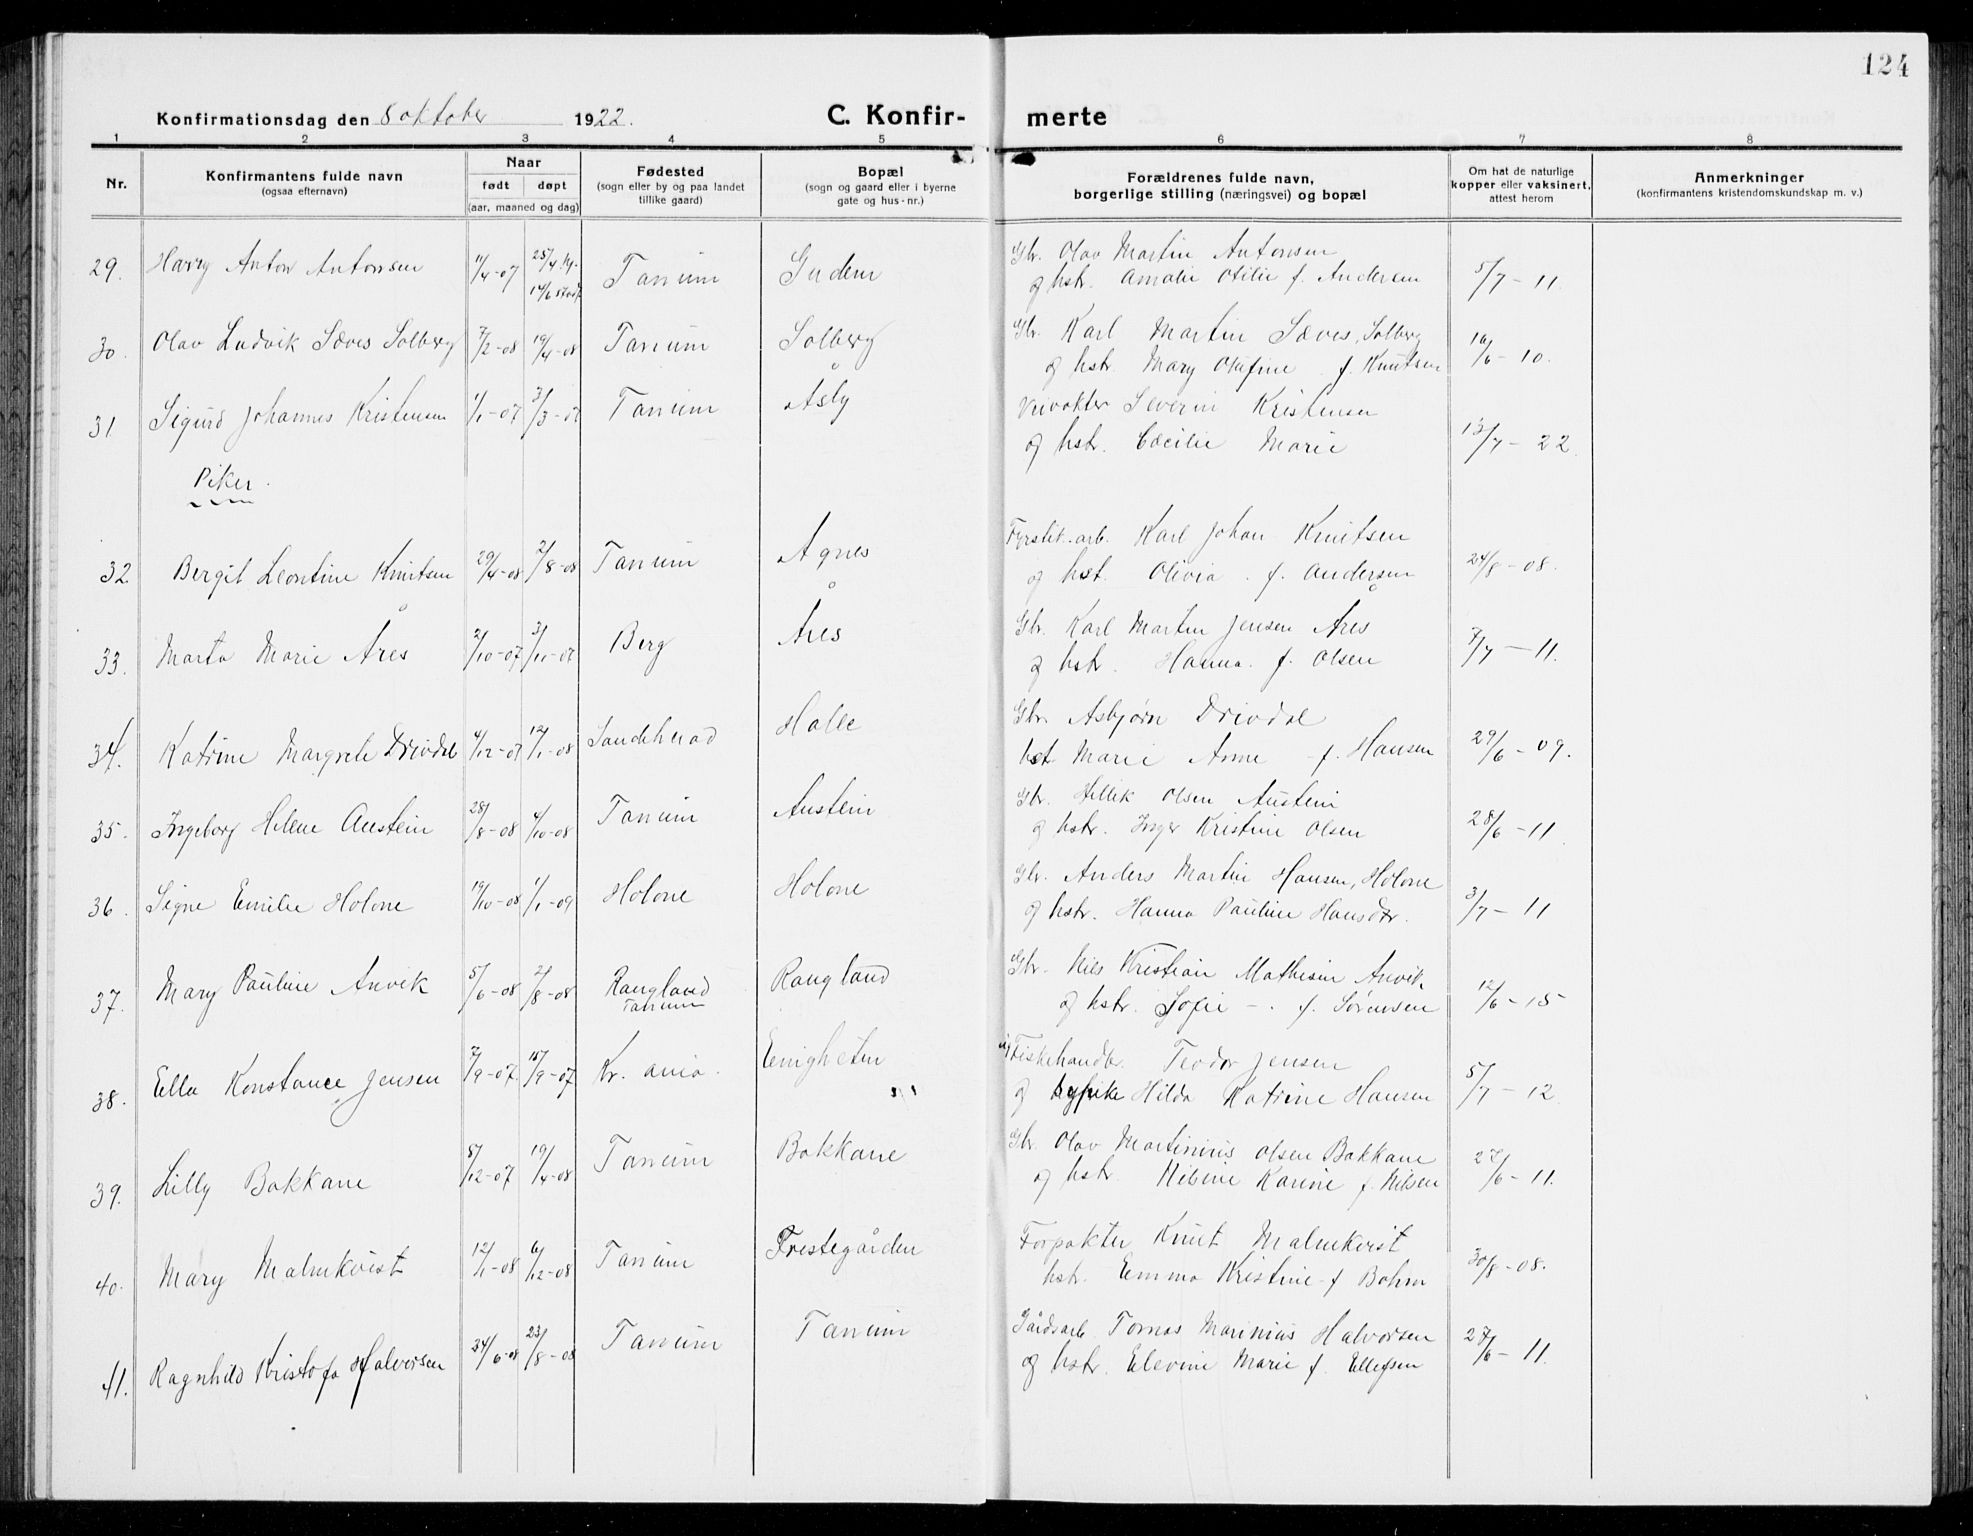 124
Konfirmationsdag den 8 oktober 1922. C. Konfirmerte
1 2 3 4 5 6 7 8
Nr. Konfirmantens fulde navn (ogsaa efternavn) Naar født døpt (aar, maaned og dag) Fødested (sogn eller by og paa landet tillike gaard) Bopæl (sogn og gaard eller i byerne gate og hus-nr.) Forældrenes fulde navn, borgerlige stilling (næringsvei) og bopæl Om hat de naturlige kopper eller vaksinert, attest herom Anmerkninger (konfirmantens kristendomskundskap m. v.)
29. Harry Anton Antonsen 11/4-07 25/4 hj. 14/6 stadf. Tanum Gudem Gbr. Olav Martin Antonsen
og hstr. Amalie Otilie f. Andersen 5/7-11.
30. Olav Ludvik Sæves Solberg 7/2-08 19/4-08 Tanum Solberg Gbr. Karl Martin Sæves, Solberg
og hstr. Mary Olufine f. Knutsen 16/6-10.
31 Sigurd Johannes Kristensen 1/1-07 3/3-07 Tanum Åsby Veivokter Severin Kristensen
og hstr. Cecilie Marie 13/7-22.
Piker.
32 Bergit Leontine Knutsen 29/4-08 2/8-08 Tanum Agnes Fyrstik.arb. Karl Johan Knutsen
og hst. Olivia f. Andersen 24/8-08.
33. Marta Marie Åres 2/10-07 3/11-07 Berg Åres Gbr. Karl Martin Jensen Åres
og hstr. Hanna f. Olsen 7/7-11.
34. Katrine Margrete Drivdal 4/12-07 12/1-08 Sandeherad Halle Gbr. Asbjørn Drivdal
hst. Marie Anne f. Hansen 29/6-09.
35. Ingeborg Helene Austein 28/8-08 4/10-08 Tanum Austein Gbr. Hellik Olsen Austein
og hstr. Inger Kristine Olsen 28/6-11.
36. Signe Emilie Holone 19/10-08 1/1-09 Holone Holone Gbr. Anders Martin Hansen, Holone
og hstr. Hanna Pauline Hansdtr. 3/7-11
37. Mary Pauline Anvik 5/6-08 2/8-08 Rangland Tanum Rangland Gbr. Nils Kristian Mathesen Anvik
og hstr. Sofie -. f. Sørensen 12/6-15
38. Ella Konstance Jensen 7/9-07 15/9-07 Kr.ania. Enigheten Fiskehandler Teodor Jensen
og sypike Hilda Katrine Hansen 5/7-12
39. Lilly Bakkane 5/12-07 19/4-08 Tanum Bakkane Gbr. Olav Martinius Olsen Bakkane
og hstr. Nilsine Karine f. Nilsen 27/6-11.
40. Mary Malmkvist 12/1-08 6/12-08 Tanum Prestegården Forpakter Knut Malmkvist
hstr. Emma Kristine f Bohm 30/8-08.
41. Ragnhild Kristofa Halvorsen 24/6-08 23/8-08 Tanum Tanum Gårdsarb. Tomas Marinius Halvorsen
og hstr. Elevine Marie f. Ellefsen 27/6-11.